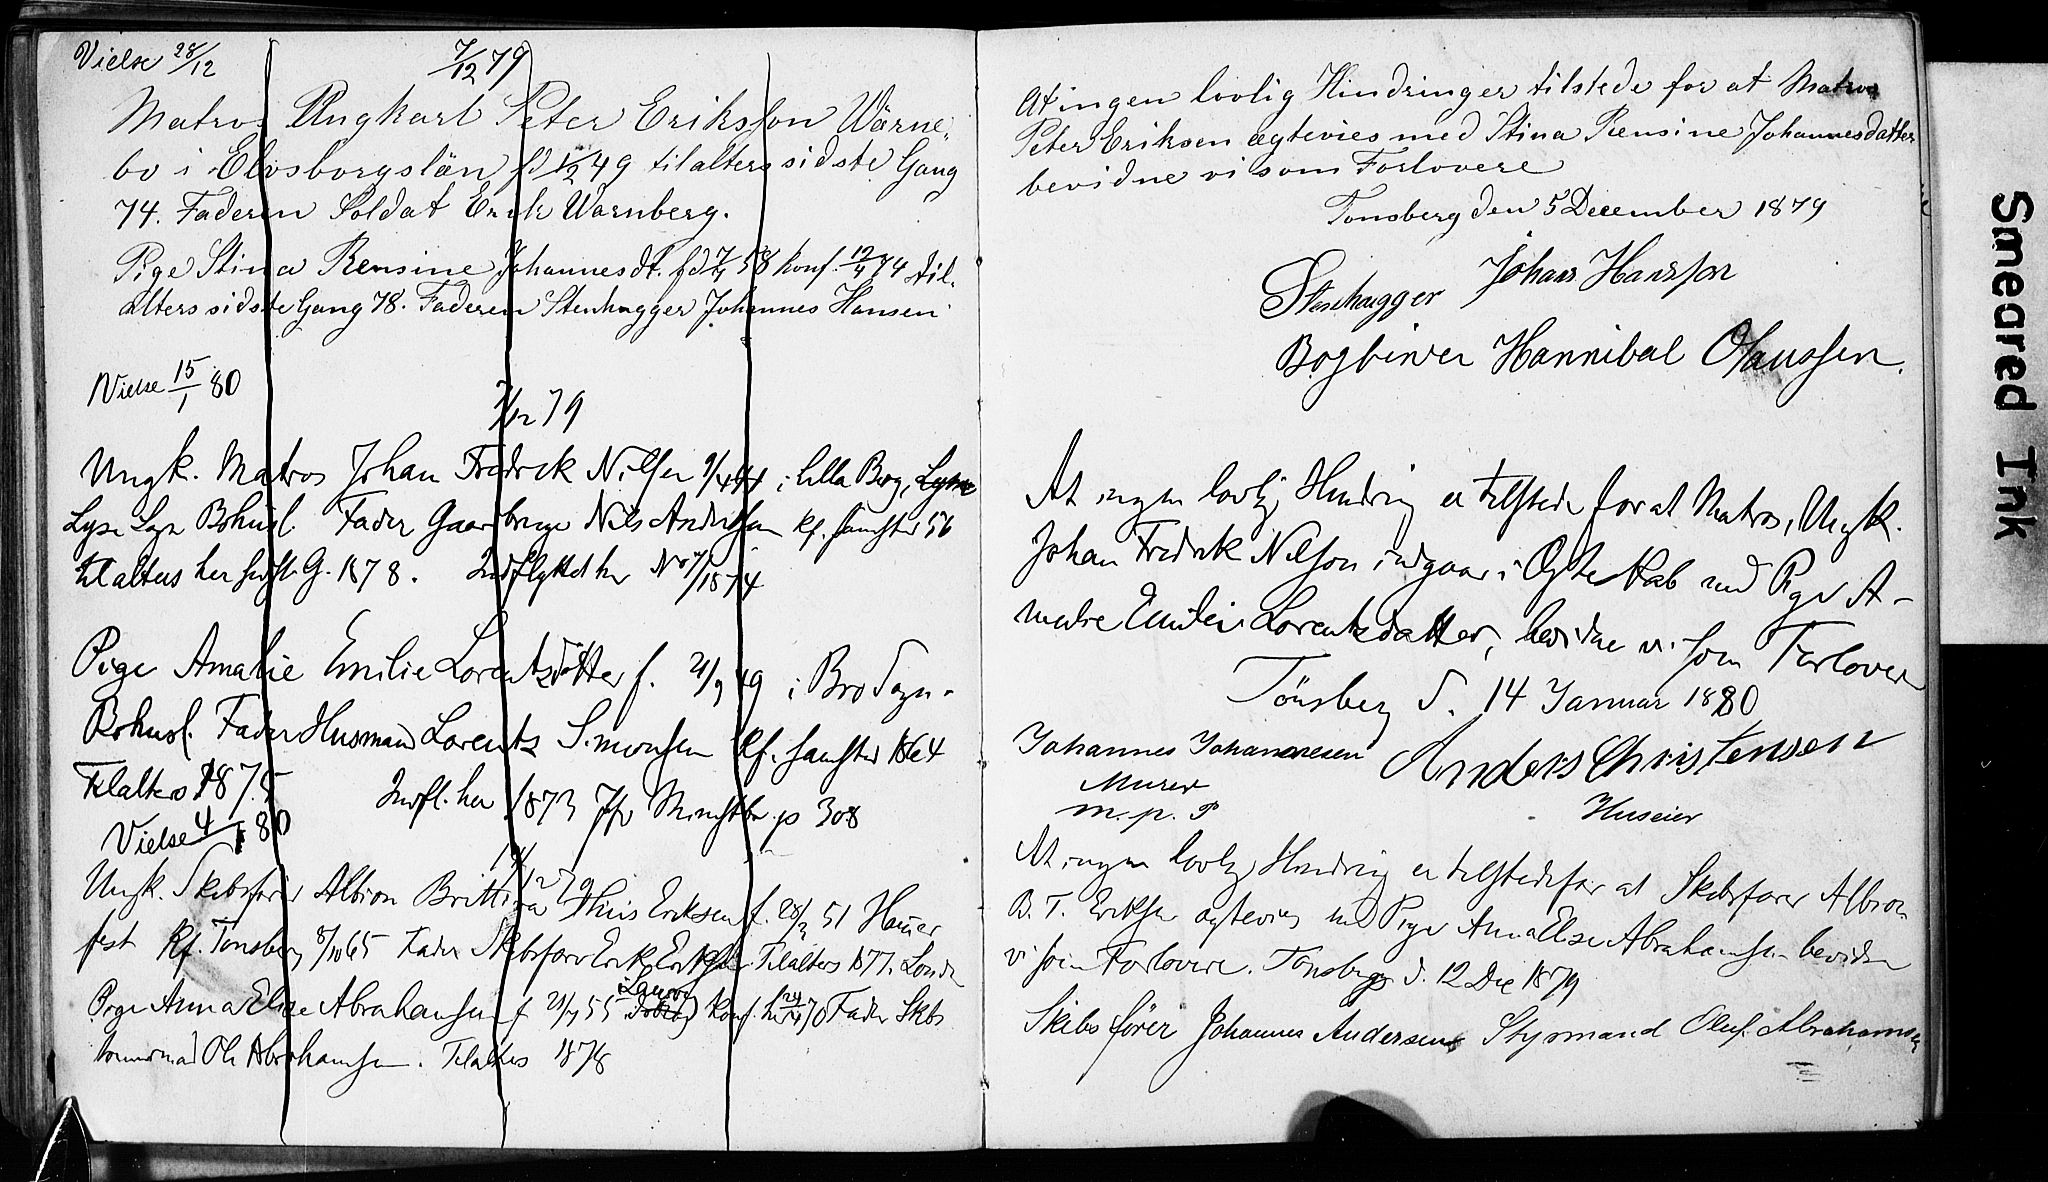 Vielse 28/12
7/12 79
Matros Ungkarl Peter Eriksson Wärne,
bo i Elvsborgslän fd 1/2 49 tilalters sidste Gang
74. Faderen Soldat Erik Warnberg.
Pige Stina Rensine Johannesdt. fd 7/7 58 Konf. 12/4 74 til.
alters sidste Gang 78. Faderen Stenhugger Johannes Hansen
Vielse 15/1 80
7/12 79
Ungk. Matros Johan Fredrek Nilsen 9/4 44 i Lilla Berg, Lyse
Lyse Sgn Bohusl. Fader Gaardbruge Nils Anderssen Kf. sammested 56
tilalters her sidst G. 1878. Indflyttet her No 7/1874
Pige Amalie Emilie Lorentzdatter f. 21/9 49 i Bro Sogn.
Bohusl. Fader Husmand Lorentz Simonsen Kf. sammested 1864
Tilalters 1875 Indfl. her 1873 Jfr Minist p 308
Vielse 4/1 80
14/12 79
Ungk. Skibsfører Albion Brittina Thiis Eriksen f. 28/2 51
fest Kf. Tonsberg 8/10 65 Fader Skibsfører Erik Eriksen. Tilalters 1877.
Laurvig
Pige Anna Elise Abrahamsen f 21/7 55 Konf. her 24/4 70 Fader Skibs
tømmermand Ole Abrahamsen. Tilalters 1878
At ingen lovlig Hindringer tilstede for at Matros
Peter Eriksen ægtevies med Stina Rensine Johannesdatter
bevidne vi som Forlovere
Tonsberg den 5 December 1879
Stenhugger Johan Hansson
Bogbinder Hannibal Olaussen.
At ingen lovlig Hindring er tilstede for at Matros, Ungk.
Johan Fredrek Nilsson indgaar i Ægteskab med Pige A-
malie Emilie Lorentzdatter, bevidne vi som Forlovere
Tönsberg d. 14 Januar 1880
Johannes Johannesen Anders Christensen
Murer
m. p. P Huseier
At ingen lovlig Hindring er tilstede for at Skibsfører Albion
B. T. Eriksen ægtevies med Pige Anna Elise Abrahamsen bevidne
vi som Forlovere. Tonsberg d. 12 Dec 1879
Skibsfører Johannes Andersen Stymand Oluf Abrahamsen
Smeared Ink